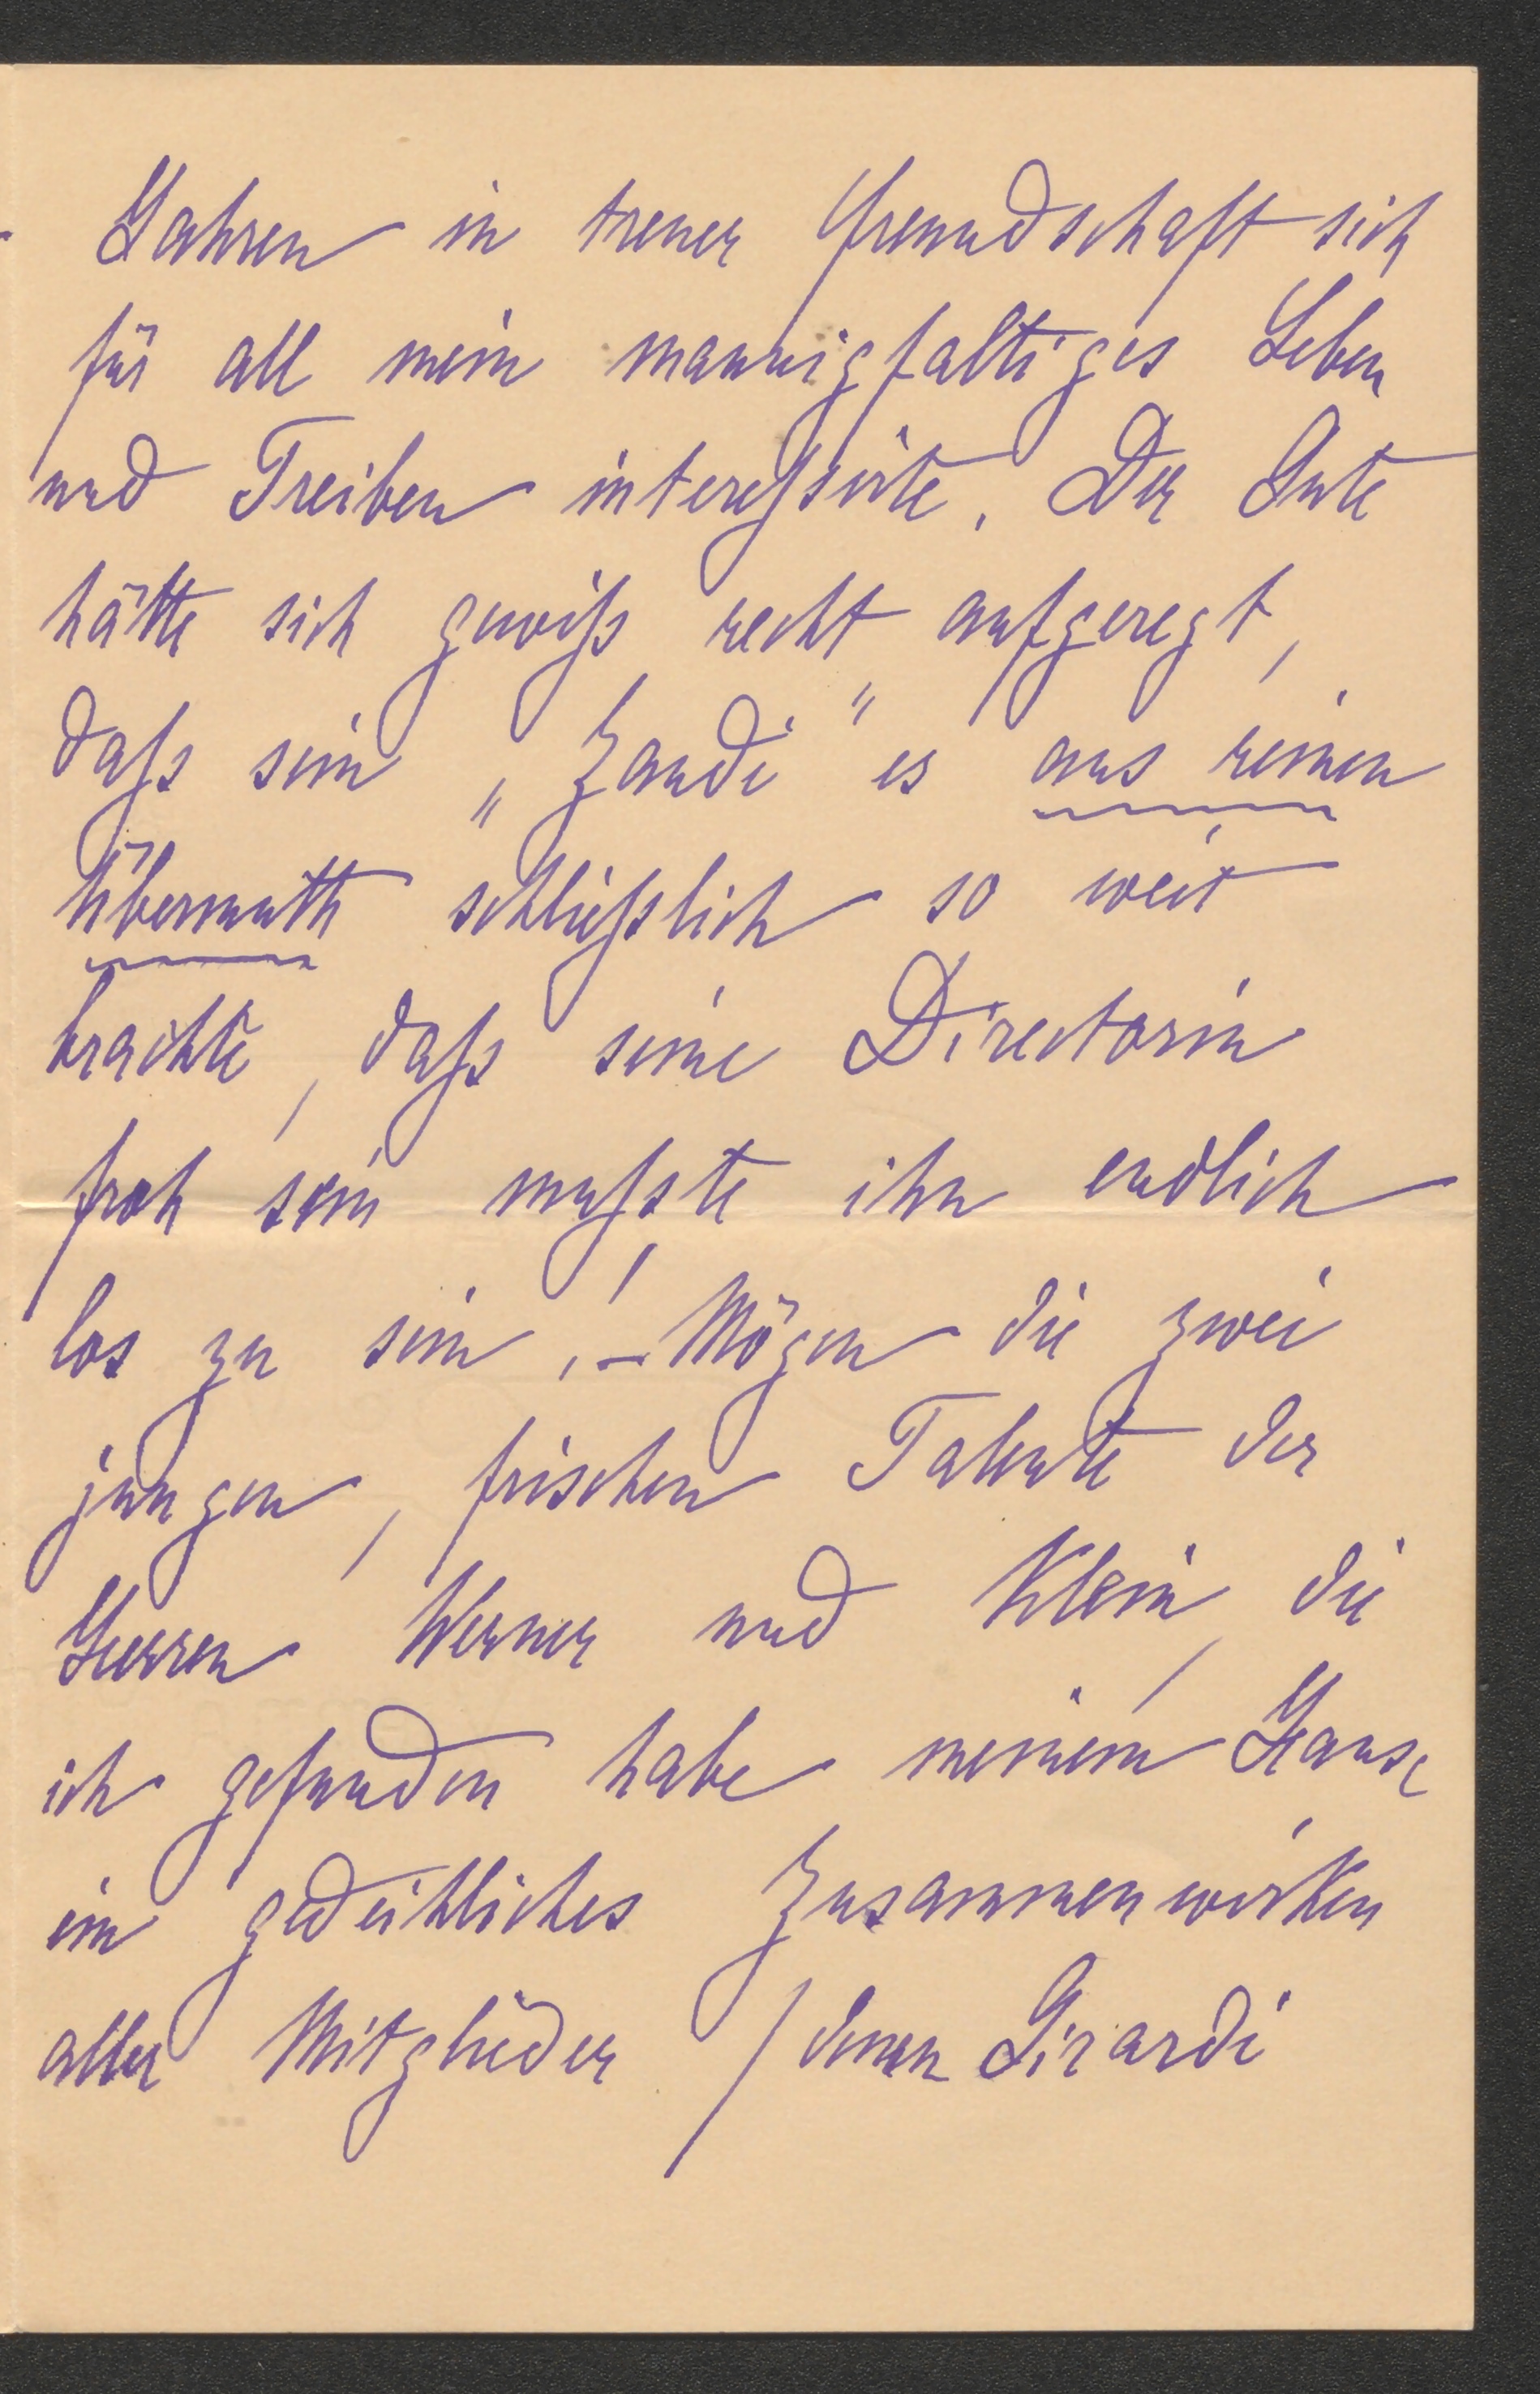 Jahren in treuer Freundschaft sich
für all mein mannigfaltiges Leben
und Treiben interesserte. Der Gute
hätte sich gewiß recht aufgeregt,
daß sein „Xandi" es aus reinen
Übermuth schließlich so weit
brachte, daß seine Directorin
froh sein mußte ihn endlich
los zu sein! – Mögen die zwei
jungen, frischen Talente der
Herren Werner und Klein, die
ich gefunden habe meinem Hause
ein gedeihliches Zusammenwirken
aller Mitglieder / denen Girardi